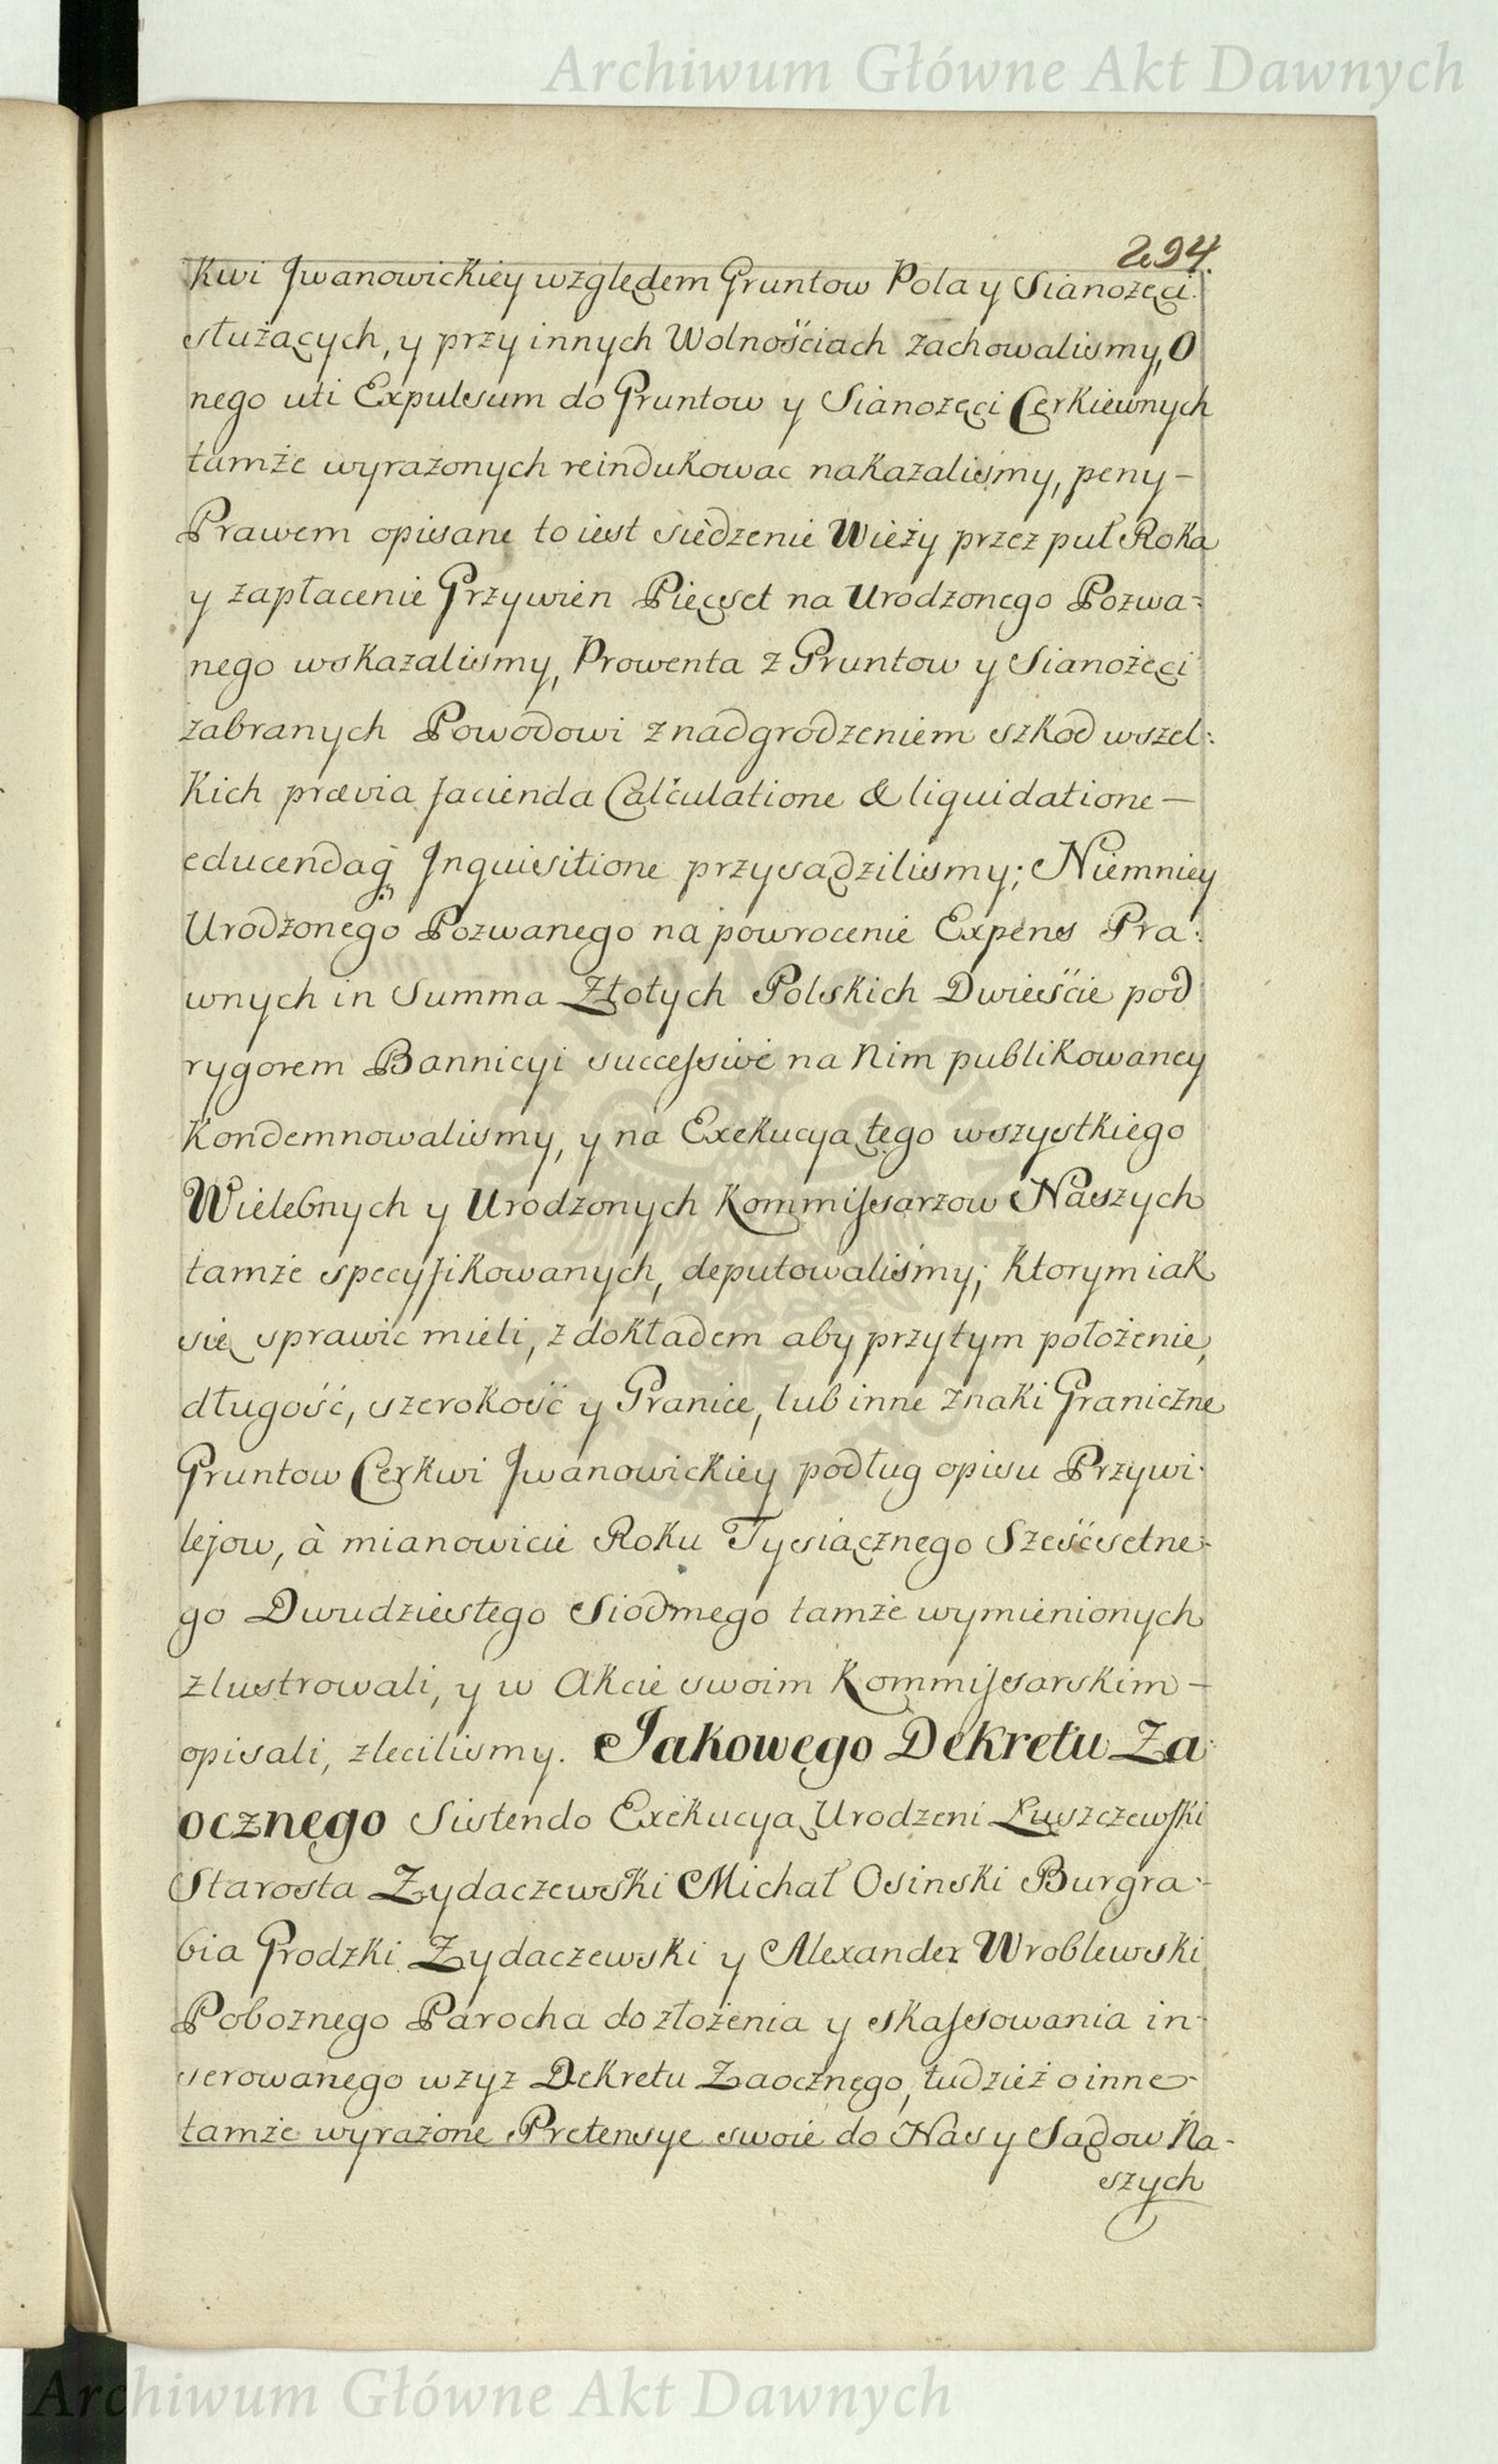 Archiwum Główne Akt Dawnych
294.
Kwi Jwanowickiey względem Gruntow Pola y Sianożęci
służących, y przy innych Wolnościach zachowalismy, O
nego uti Expulsum do Gruntow y Sianozęci Cerkiewnych
tamże wyrażonych reindukowac nakazaliśmy, peny –
Prawem opisane to iest siedzenie Wieży przez puł Roka
y zapłacenie Grzywien Pięcset na Urodzonego Pozwa:
nego wskazalismy, Prowenta z Gruntow y Sianożęci
zabranych Powodowi z nadgrodzeniem szkod wszel:
Kich prævia facienda Calculatione & liquidatione —
educendaq̃ Jnquisitione przysądzilismy; Niemniey
Urodzonego Pozwanego na powrocenie Expens Pra:
wnych in Summa Złotych Polskich Dwieście pod
rygorem Bannicyi successive na Nim publikowaney
Kondemnowalismy, y na Exekucyą tego wszystkiego
Wielebnych y Urodzonych Kommissarzow Naszych
tamże specyfikowanych, deputowaliśmy; Ktorym iak
się sprawic mieli, z dokładem aby przytym położenie,
długość, szerokość y Granice, lub inne znaki Graniczne
Gruntow Cerkwi Jwanowickiey podług opisu Przywi:
lejow, à mianowicie Roku Tysiącznego Sześćsetne:
go Dwudziestego Siodmego tamże wymienionych
zlustrowali, y w Akcie swoim Kommissarskim –
opisali, zlecilismy. Jakowego Dekretu Za:
ocznego Sistendo Exekucyą Urodzeni Łuszczewski
Starosta Zydaczewski Michał Osinski Burgra:
bia Grodzki Zydaczewski y Alexander Wroblewski
Pobożnego Parocha do złożenia y skassowania in:
serowanego wzyz Dekretu Zaocznego, tudzież o inne
tamże wyrażone Pretensye swoie do Nas y Sądow Na-
szych
Archiwum Główne Akt Dawnych